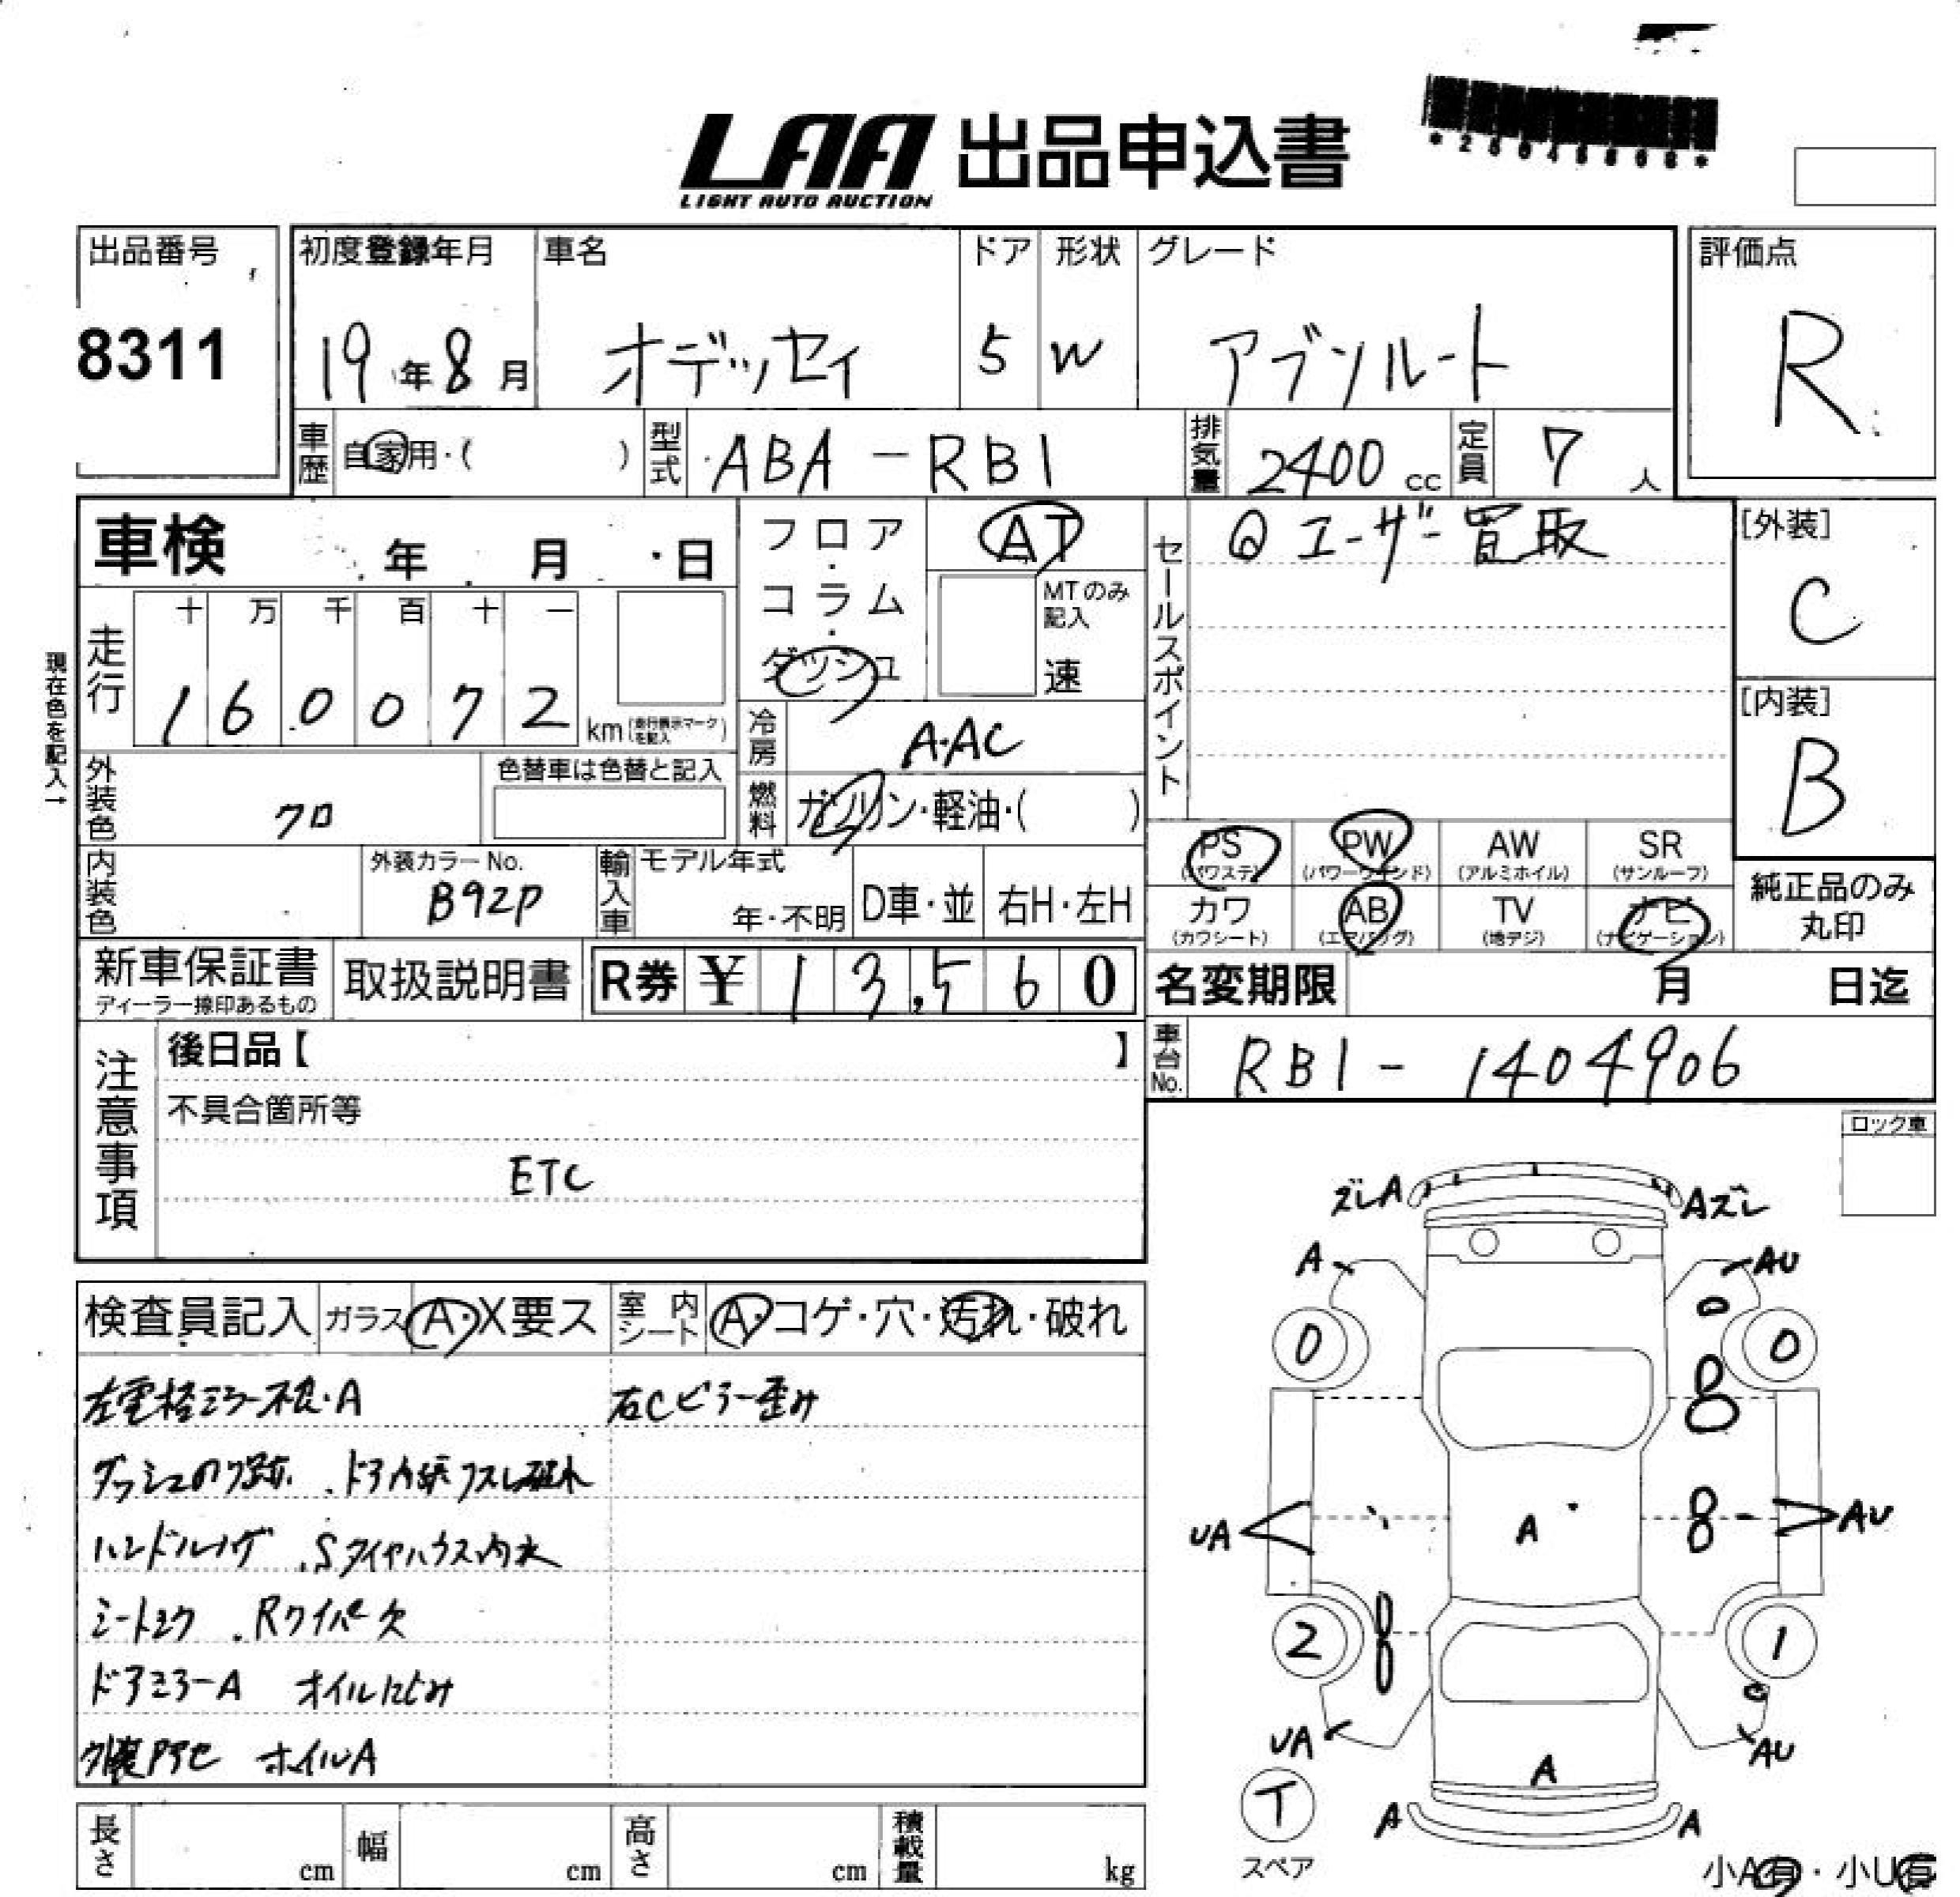 LAA 出品申込書
LIGHT AUTO AUCTION
出品番号
8311
初度登録年月
19年8月
車名
オデッセイ
ドア
5
形状
W
グレード
アブソルート
評価点
R
車歴
自家用・( )
型式
ABA-RB1
排気量
2400 cc
定員
7 人
車検 年 月 日
フロア・コラム・ダッシュ
AT
MTのみ記入
速
セールスポイント
Qユーザー買取
[外装]
C
[内装]
B
現在色を記入→
走行
十 万 千 百 十 一
1 6 0 0 7 2
km(走行表示マークを記入)
冷房
A・AC
燃料
ガソリン・軽油・( )
外装色
クロ
色替車は色替と記入
内装色
外装カラーNo.
B92P
輸入車
モデル年式
年・不明
D車・並
右H・左H
PS
(パワステ)
PW
(パワーウインド)
AW
(アルミホイル)
SR
(サンルーフ)
カワ
(カワシート)
AB
(エアバッグ)
TV
(地デジ)
ナビ
(ナビゲーション)
純正品のみ
丸印
新車保証書
ディーラー捺印あるもの
取扱説明書
R券 ¥ 13,560
名変期限 月 日迄
車台No.
RB1-1404906
注意事項
後日品【 】
不具合箇所等
ETC
ロック車
検査員記入
ガラス
A・X要ス
室内シート
A・コゲ・穴・汚れ・破れ
左電格ミラー不良・A
右Cピラー歪み
ダッシュのり跡
ハンドルハゲ .Sタイヤハウス内水
.Rワイパー欠
ドアミラーA オイルにじみ
ホイルA
ズレA
Aズレ
A
AU
0
0
UA
A
AU
2
1
UA
AU
A
T
スペア
A
A
小A有・小U有
長さ cm
幅 cm
高さ cm
積載量 kg